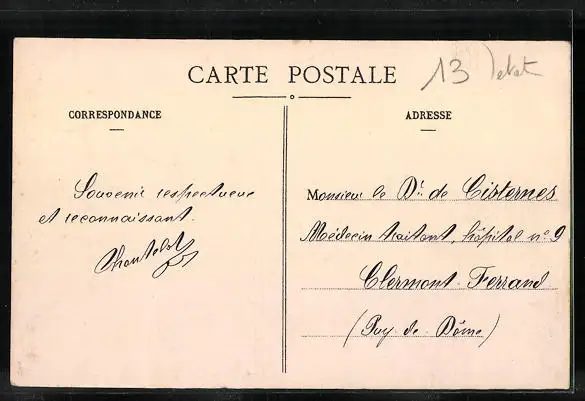 CARTE POSTALE
13
CORRESPONDANCE
ADRESSE
Souvenir respectueux
et reconnaissant.
Monsieur le Dr. de Cisternes
Médecin traitant, hôpital no 9
Clermont-Ferrand
(Puy-de-Dôme)